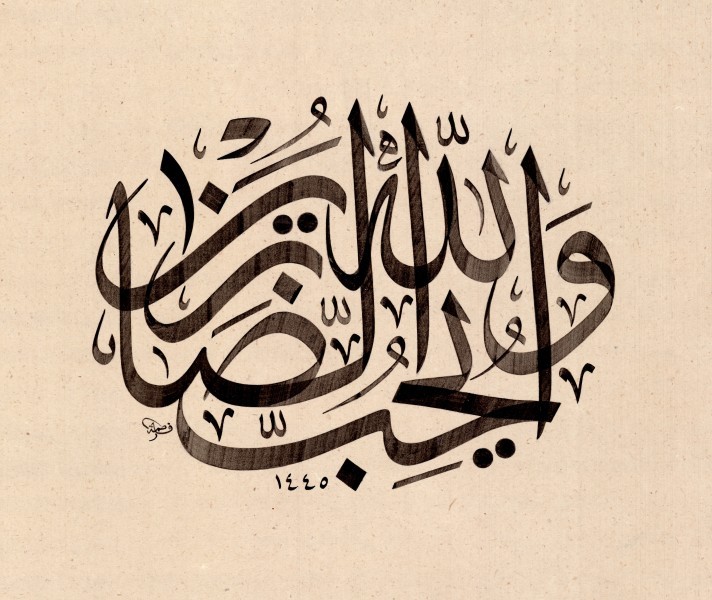 وَاللّٰهُ يُحِبُّ الصَّابِرِينَ
١٤٤٥